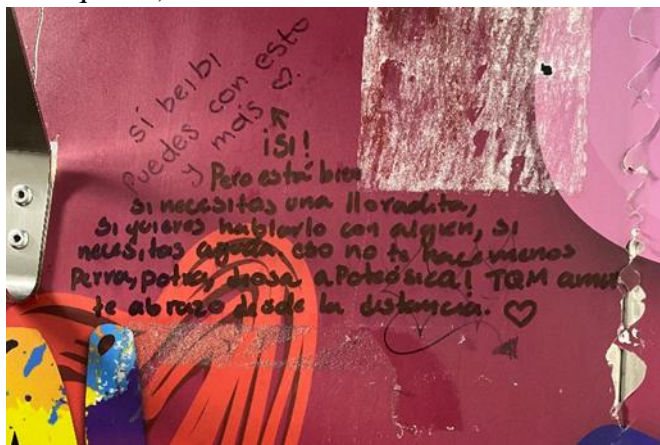 si beibi
puedes con esto
y más ♡.
¡SI!
Pero está bien
si necesitas una lloradita,
si quieres hablarlo con alguien, si
necesitas ayuda eso no te hace menos
Perra, potra, diosa apoteósica! TQM amor
te abrazo desde la distancia. ♡